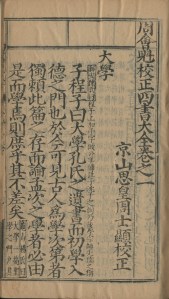 周會魁校正四書大全卷之一
京山思皇周士顯校正
大學
子程子曰大學孔氏之遺書而初學入
德之門也於今可見古人為學次第者
獨頼此篇之存而論孟次之學者必由
是而學焉則庶乎其不差矣